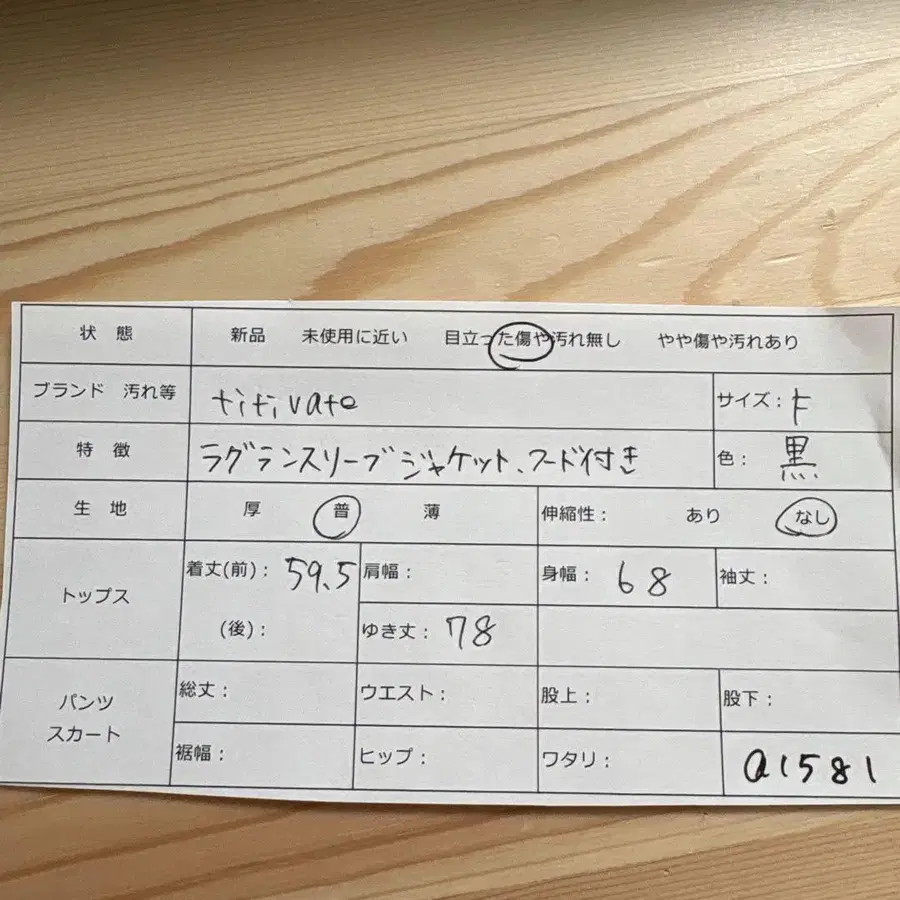 状 態 新品 未使用に近い 目立った傷や汚れ無し やや傷や汚れあり
ブランド 汚れ等 titivate サイズ: F
特 徴 ラグランスリーブジャケット、フード付き 色: 黒
生 地 厚 普 薄 伸縮性: あり なし
トップス 着丈(前): 59.5 肩幅: 身幅: 68 袖丈:
(後): ゆき丈: 78
パンツ スカート 総丈: ウエスト: 股上: 股下:
裾幅: ヒップ: ワタリ: a1581